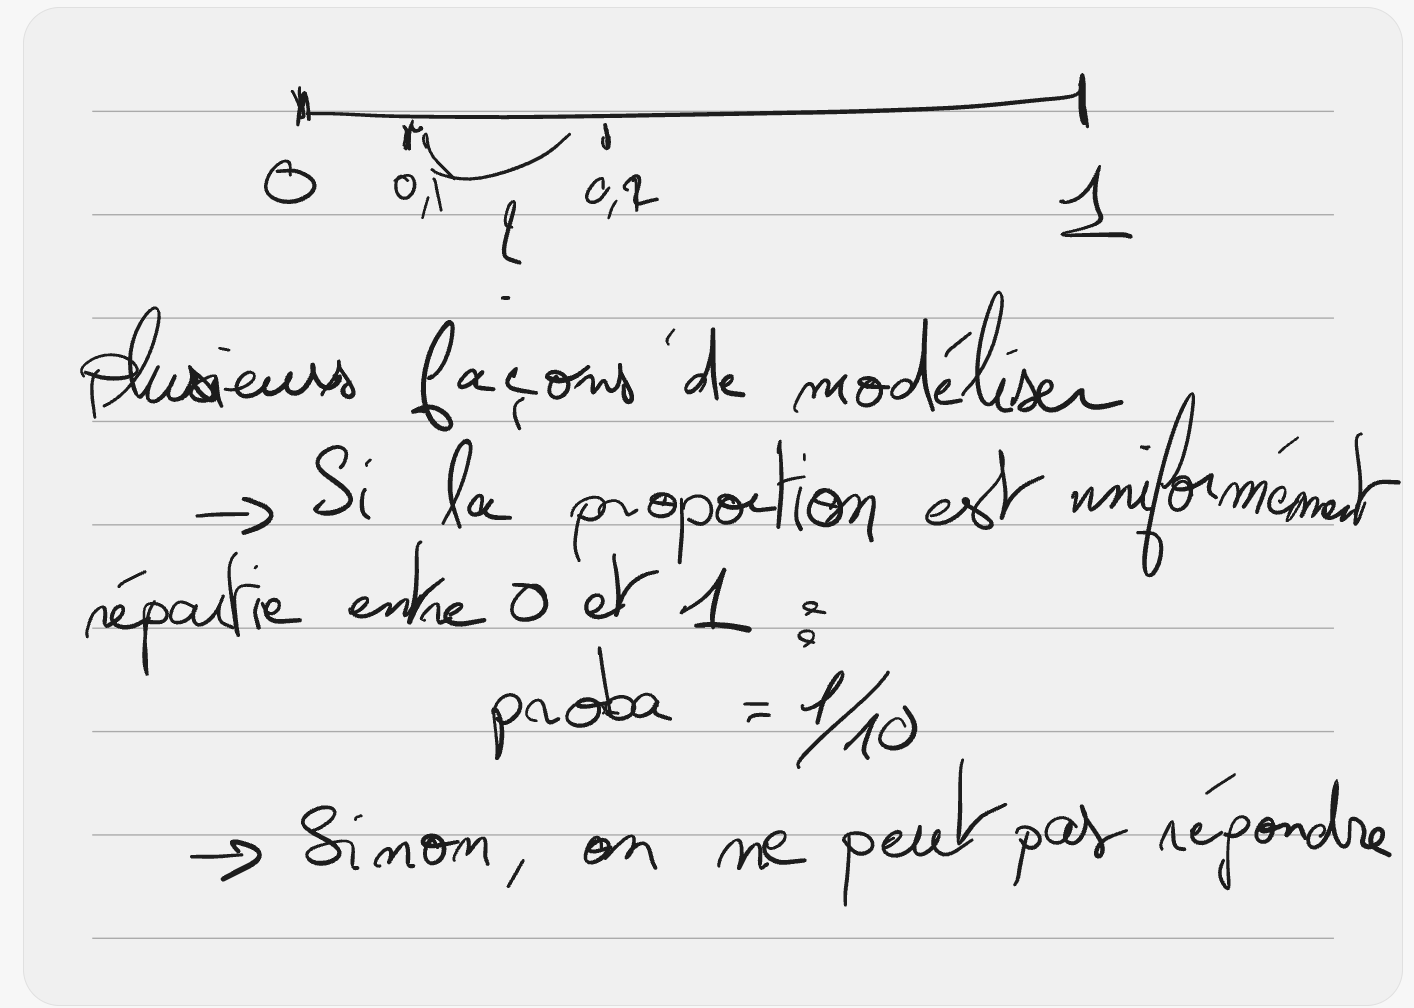 0 0,1 0,2 1
plusieurs façons de modéliser
→ Si la proportion est uniformément
répartie entre 0 et 1 :
proba = 1/10
→ Sinon, on ne peut pas répondre